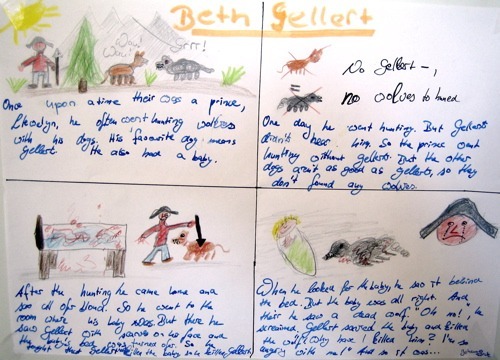 Beth Gellert
Wau!
Wau!
Grrr!
Once upon a time their was a prince,
Llewelyn, he often went hunting wolves
with his dogs. His favourite dog means
Gellert. He also had a baby.
No Gellert -,
no wolves to huned
One day he went hunting. But Gellert
didn't hear him. So the prince went
hunting without Gellert. But the other
dogs aren't as good as gellerts, so they
don't found any wolves.
After the hunting he came home and
saw all of blood. So he went to the
room where his baby was. But there he
saw Gellert with on his face and
the baby's bed was turned over. So
thought that Gellert killed the baby so he killed Gellert.
When he looked for the baby, he saw it behind
the bed. But the baby was all right. And
their he saw a dead wolf. "Oh no!", he
screamed, Gellert saved the baby and killed
the wolf. Why have I killed him? I'm
angry with me! And so I was ...